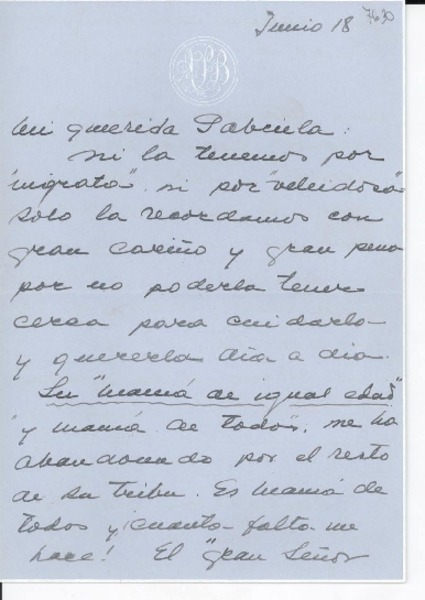 Junio 18 7630
Mi querida Gabriela:
Ni la tenemos por
"ingrata" ni por "veleidosa"
solo la recordamos con
gran cariño y gran pena
por no poderla tener
cerca para cuidarla
y quererla día a día.
Su "mamá de igual edad"
"y mamá de todos", me ha
abandonado por el resto
de su tribu. Es mamá de
todos y ¡cuánta falta me
hace! El "gran Señor